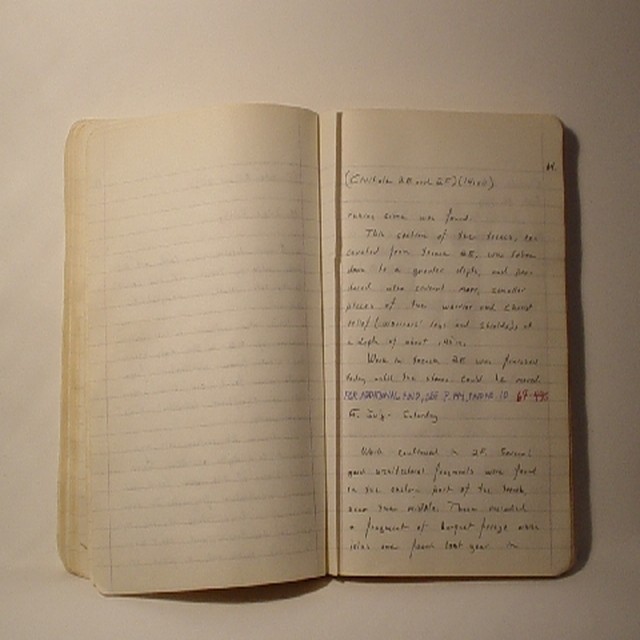 44.
(Civitalba 2E and 2F) (14:00)
was found.
This section of the trench, ex-
cavated from Trench 2E, was taken
down to a greater depth, and pro-
duced when several more, smaller
pieces of the warrior and chariot
relief (warriors' legs and shields) at
a depth of about
Work in Trench 2E was finished
today until the stones could be moved.
FOR ADDITIONAL FIND, SEE P. 144, 69-
5. July - Saturday
Work continued in 2F. Several
good architectural fragments were found
in the eastern part of the trench,
near the middle. These included
a fragment of banquet frieze
one found last year in